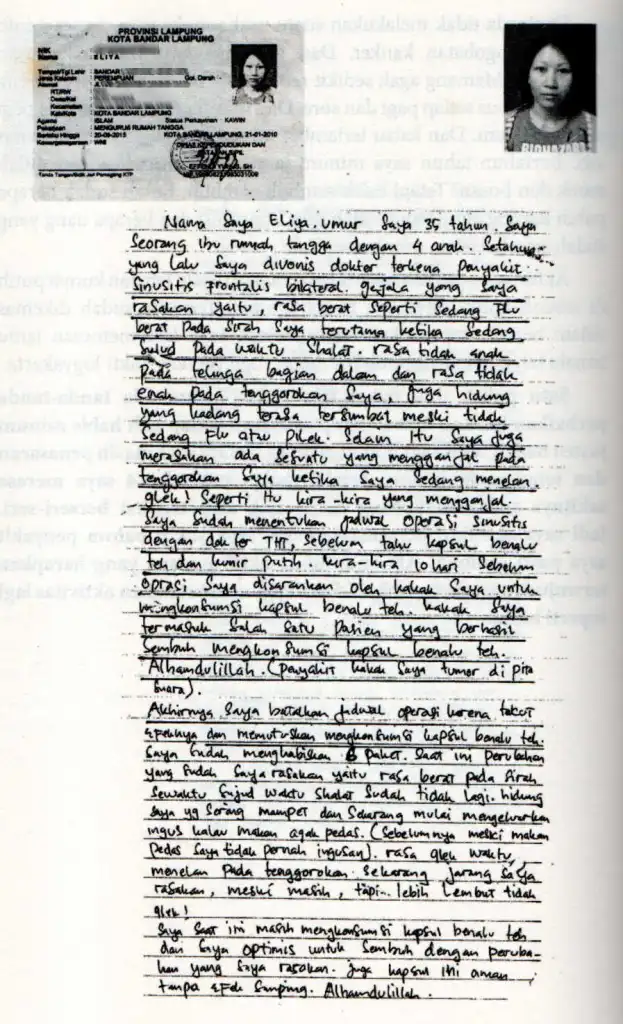 PROVINSI LAMPUNG
KOTA BANDAR LAMPUNG
NIK
Nama : ELIYA
Tempat/Tgl Lahir : BANDAR
Jenis Kelamin : PEREMPUAN Gol. Darah : -
Alamat
RT/RW
Desa/Kel
Kecamatan
Kab/Kota : KOTA BANDAR LAMPUNG
Agama : ISLAM Status Perkawinan : KAWIN
Pekerjaan : MENGURUS RUMAH TANGGA
Berlaku Hingga : 20-09-2015 KOTA BANDAR LAMPUNG, 21-01-2010
Kewarganegaraan : WNI
Nama Saya Eliya. umur Saya 35 tahun Saya
Seorang ibu rumah tangga dengan 4 anak. Setahun
yang lalu Saya divonis dokter terkena penyakit
Sinusitis Frontalis bilateral. gejala yang Saya
rasakan yaitu, rasa berat seperti Sedang Flu
berat pada Sirah Saya terutama ketika Sedang
Sujud pada waktu Shalat. rasa tidak enak
pada telinga bagian dalam dan rasa tidak
enak pada tenggorokan Saya. Juga hidung
yang kadang terasa tersumbat meski tidak
Sedang Flu atau Pilek. Selain itu Saya juga
merasakan ada Sesuatu yang mengganjal pada
tenggorokan Saya ketika Saya Sedang menelan
glek! Seperti itu kira-kira yang mengganjal.
Saya Sudah menentukan Jadwal operasi Sinusitis
dengan dokter THT, Sebelum tahu kapsul benalu
teh dan kunir putih. kira-kira 10 hari Sebelum
oprasi Saya disarankan oleh kakak Saya untuk
mengkonsumsi kapsul benalu teh. kakak Saya
termasuk Salah Satu Pasien yang berhasil
Sembuh mengkonsumsi kapsul benalu teh.
Alhamdulillah. (Penyakit kakak Saya tumor di pita
Suara).
Akhirnya Saya batalkan Jadwal operasi karena takut
efeknya dan memutuskan mengkonsumsi kapsul benalu teh.
Saya Sudah menghabiskan 6 paket. Saat ini perubahan
yang Sudah Saya rasakan yaitu rasa berat pada Sirah
Sewaktu Sujud waktu Shalat Sudah tidak lagi. hidung
Saya yg Sering mampet dan Sekarang mulai mengeluarkan
ingus kalau makan agak pedas. (Sebelumnya meski makan
Pedas Saya tidak Pernah ingusan). rasa glek waktu
menelan Pada tenggorokan Sekarang Jarang Saya
rasakan, meski masih, tapi.. lebih Lembut tidak
glek!
Saya Saat ini masih mengkonsumsi kapsul benalu teh
dan Saya optimis untuk Sembuh dengan peruba-
han yang Saya rasakan. Juga kapsul ini aman
tanpa efek Samping. Alhamdulillah.